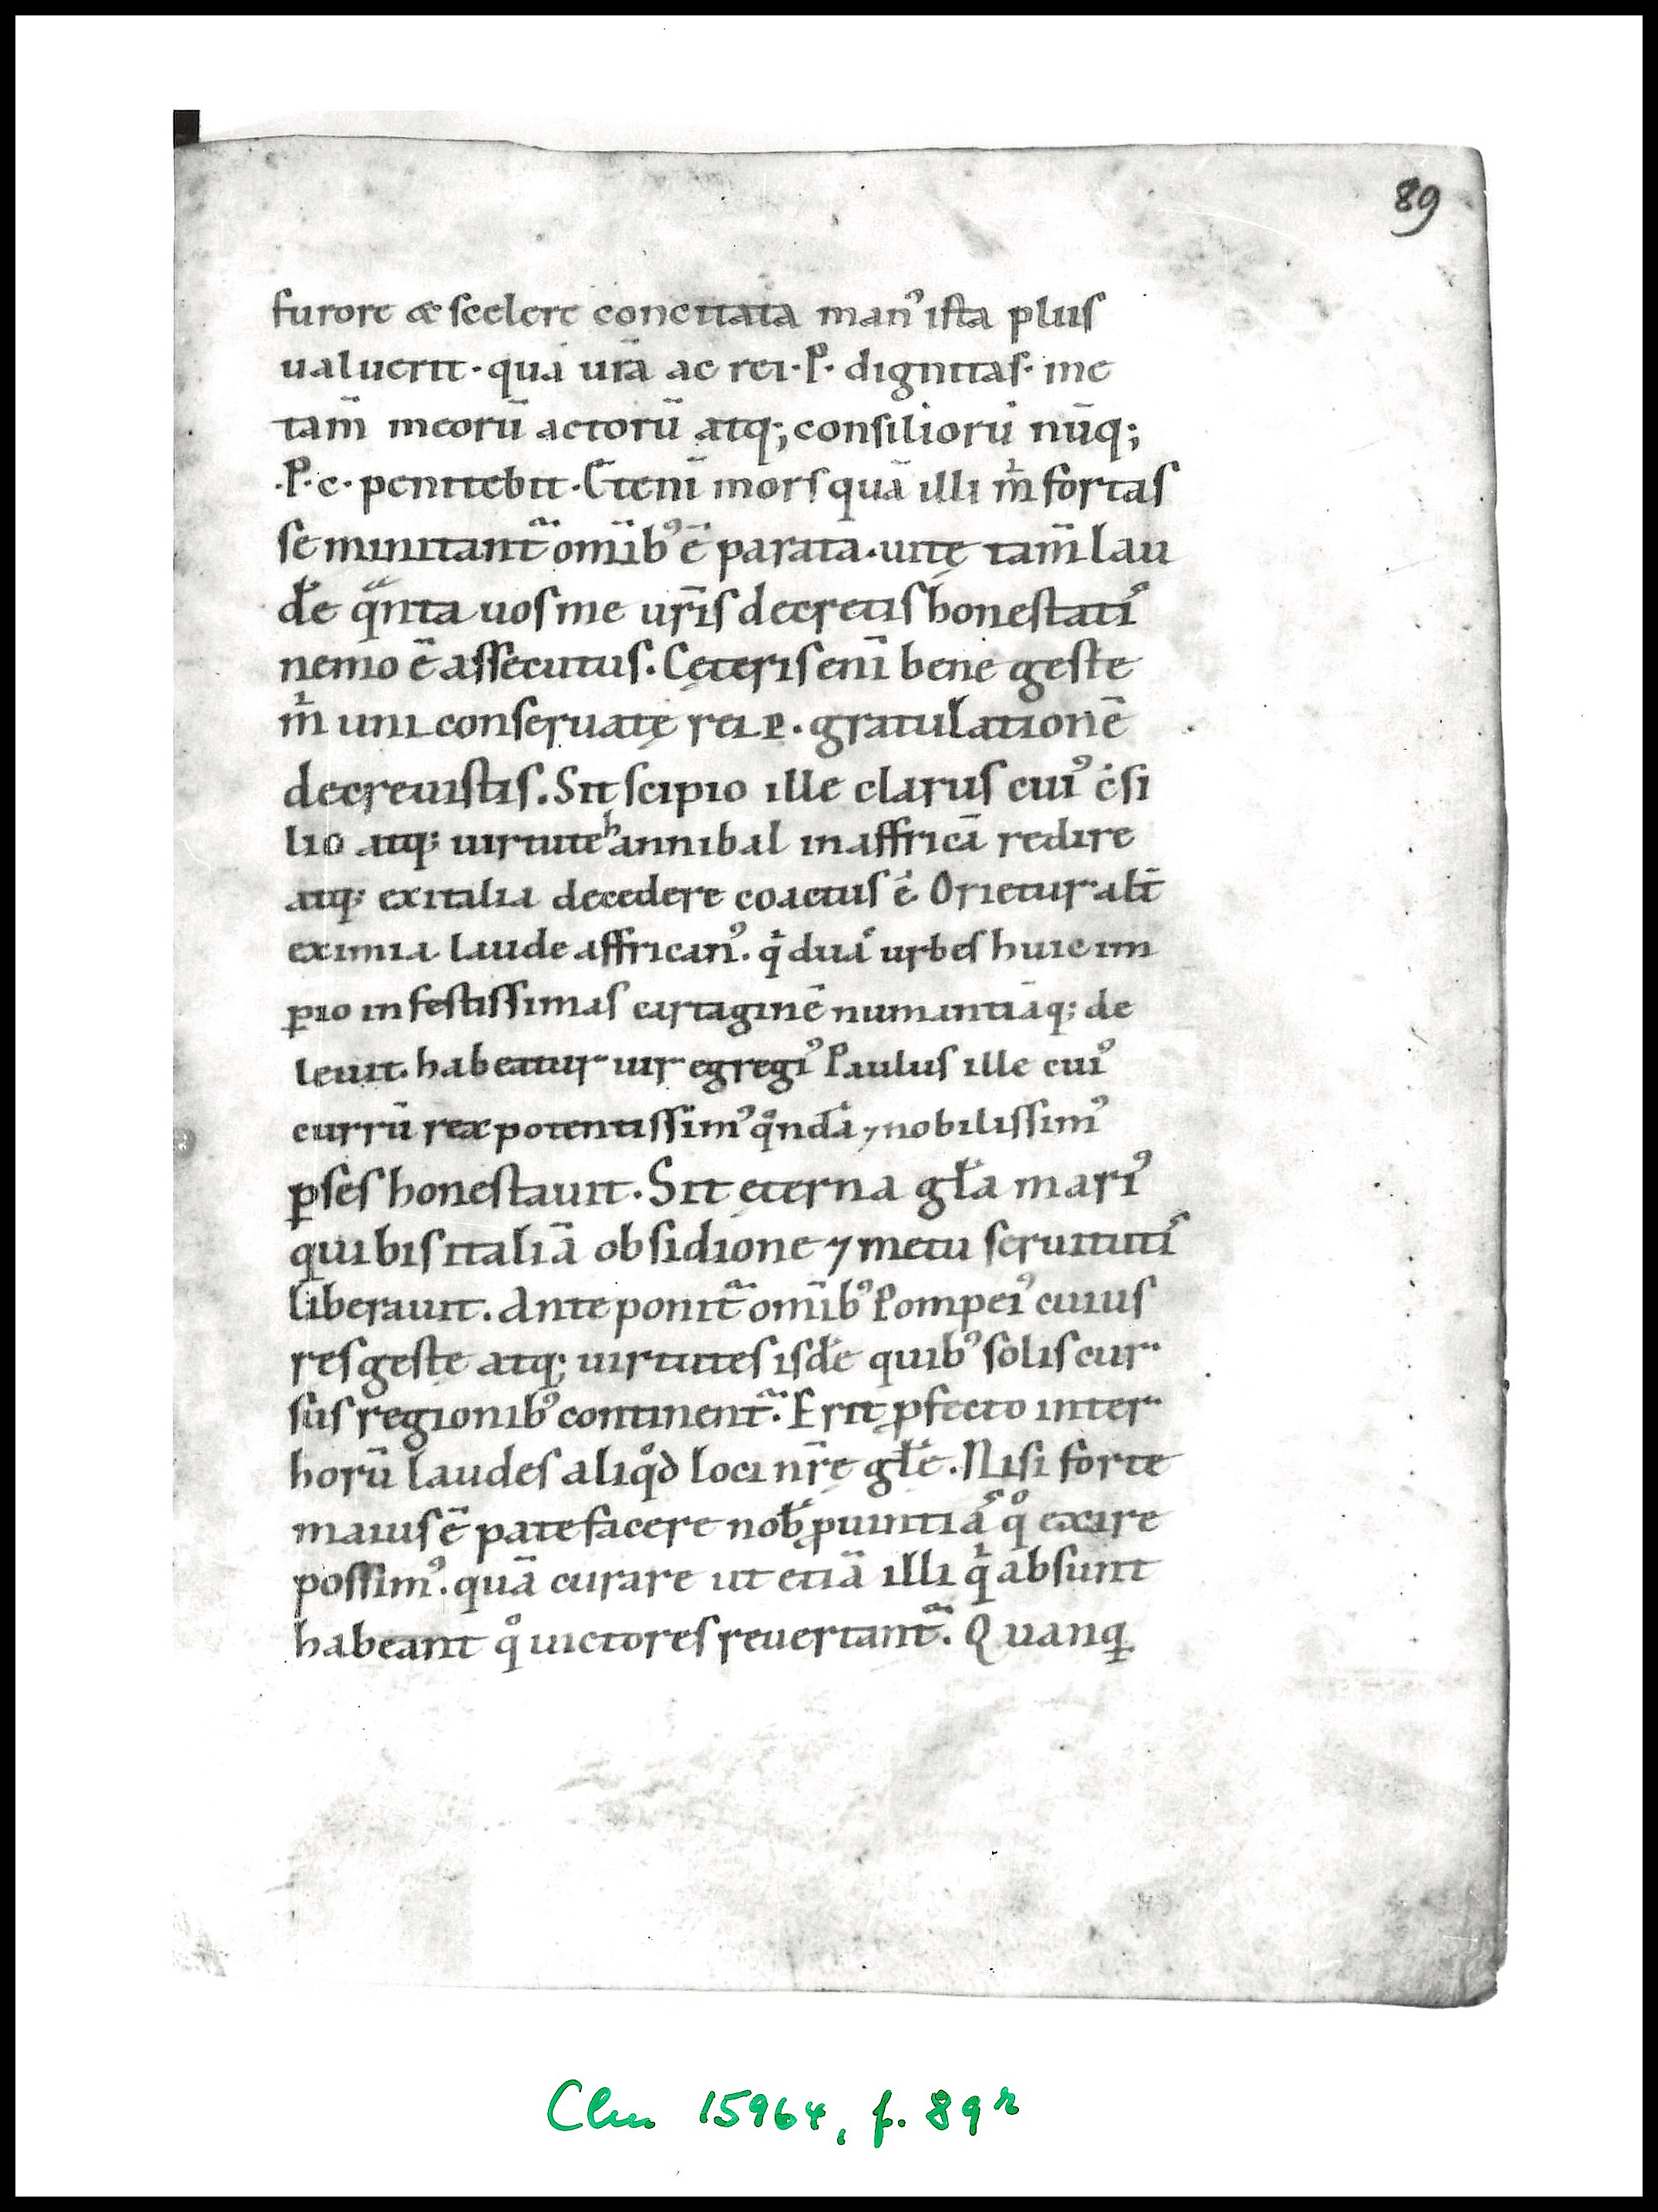 89
furore & scelere concitata man᾿ ista plus
ualuerit · quā urā ac rei · P · dignitas · me
tam̄ meorū actorū atq; consiliorū nūq;
· P · c · penitebit · Eteni mors quā illi m̄ fortas
se minitant᷑ omīb᾿ ē parata · uitę tam̄ lau
dē qͣnta uos me urīs decretis honestatiˢ
nemo ē assecutus . Cęteris enī bene geste
m̄ uni conseruatę rei p . gratulationē
decreuistis . Sit scipio ille clarus cui᾿ c̄si
lio atq; uirtute hannibal in affricā redire
atq; ex italia decedere coactus ē Orietur alt̄
eximia laude affrican᾿ . qͥ duaˢ urbes huic im
ꝑio infestissimas cartaginē numantiāq; de
leuit . habeatur uir egregi᾿ Paulus ille cui᾿
currū rex potentissim᾿ qͦndā ⁊ nobilissim᾿
ꝑses honestauit . Sit ęterna gła mari᾿
qui bis italiā obsidione ⁊ metu seruitutiˢ
liberauit . Anteponit᷑ omīb᾿ Pompei᾿ cuius
res gestę atq; uirtutes isdē quib᾿ solis cur
sus regionib᾿ continent᷑ . Erit ꝓfecto inter
horū laudes aliqͦd loci nr̄ę głę . Nisi forte
maius ē patefacere nob̄ ꝓuintiaˢ qͦ exire
possim᾿ . quā curare ut etiā illi qͥ absunt
habeant qͦ uictores reuertant᷑ . Quanꝗ
Clm 15964, f. 89ʳ